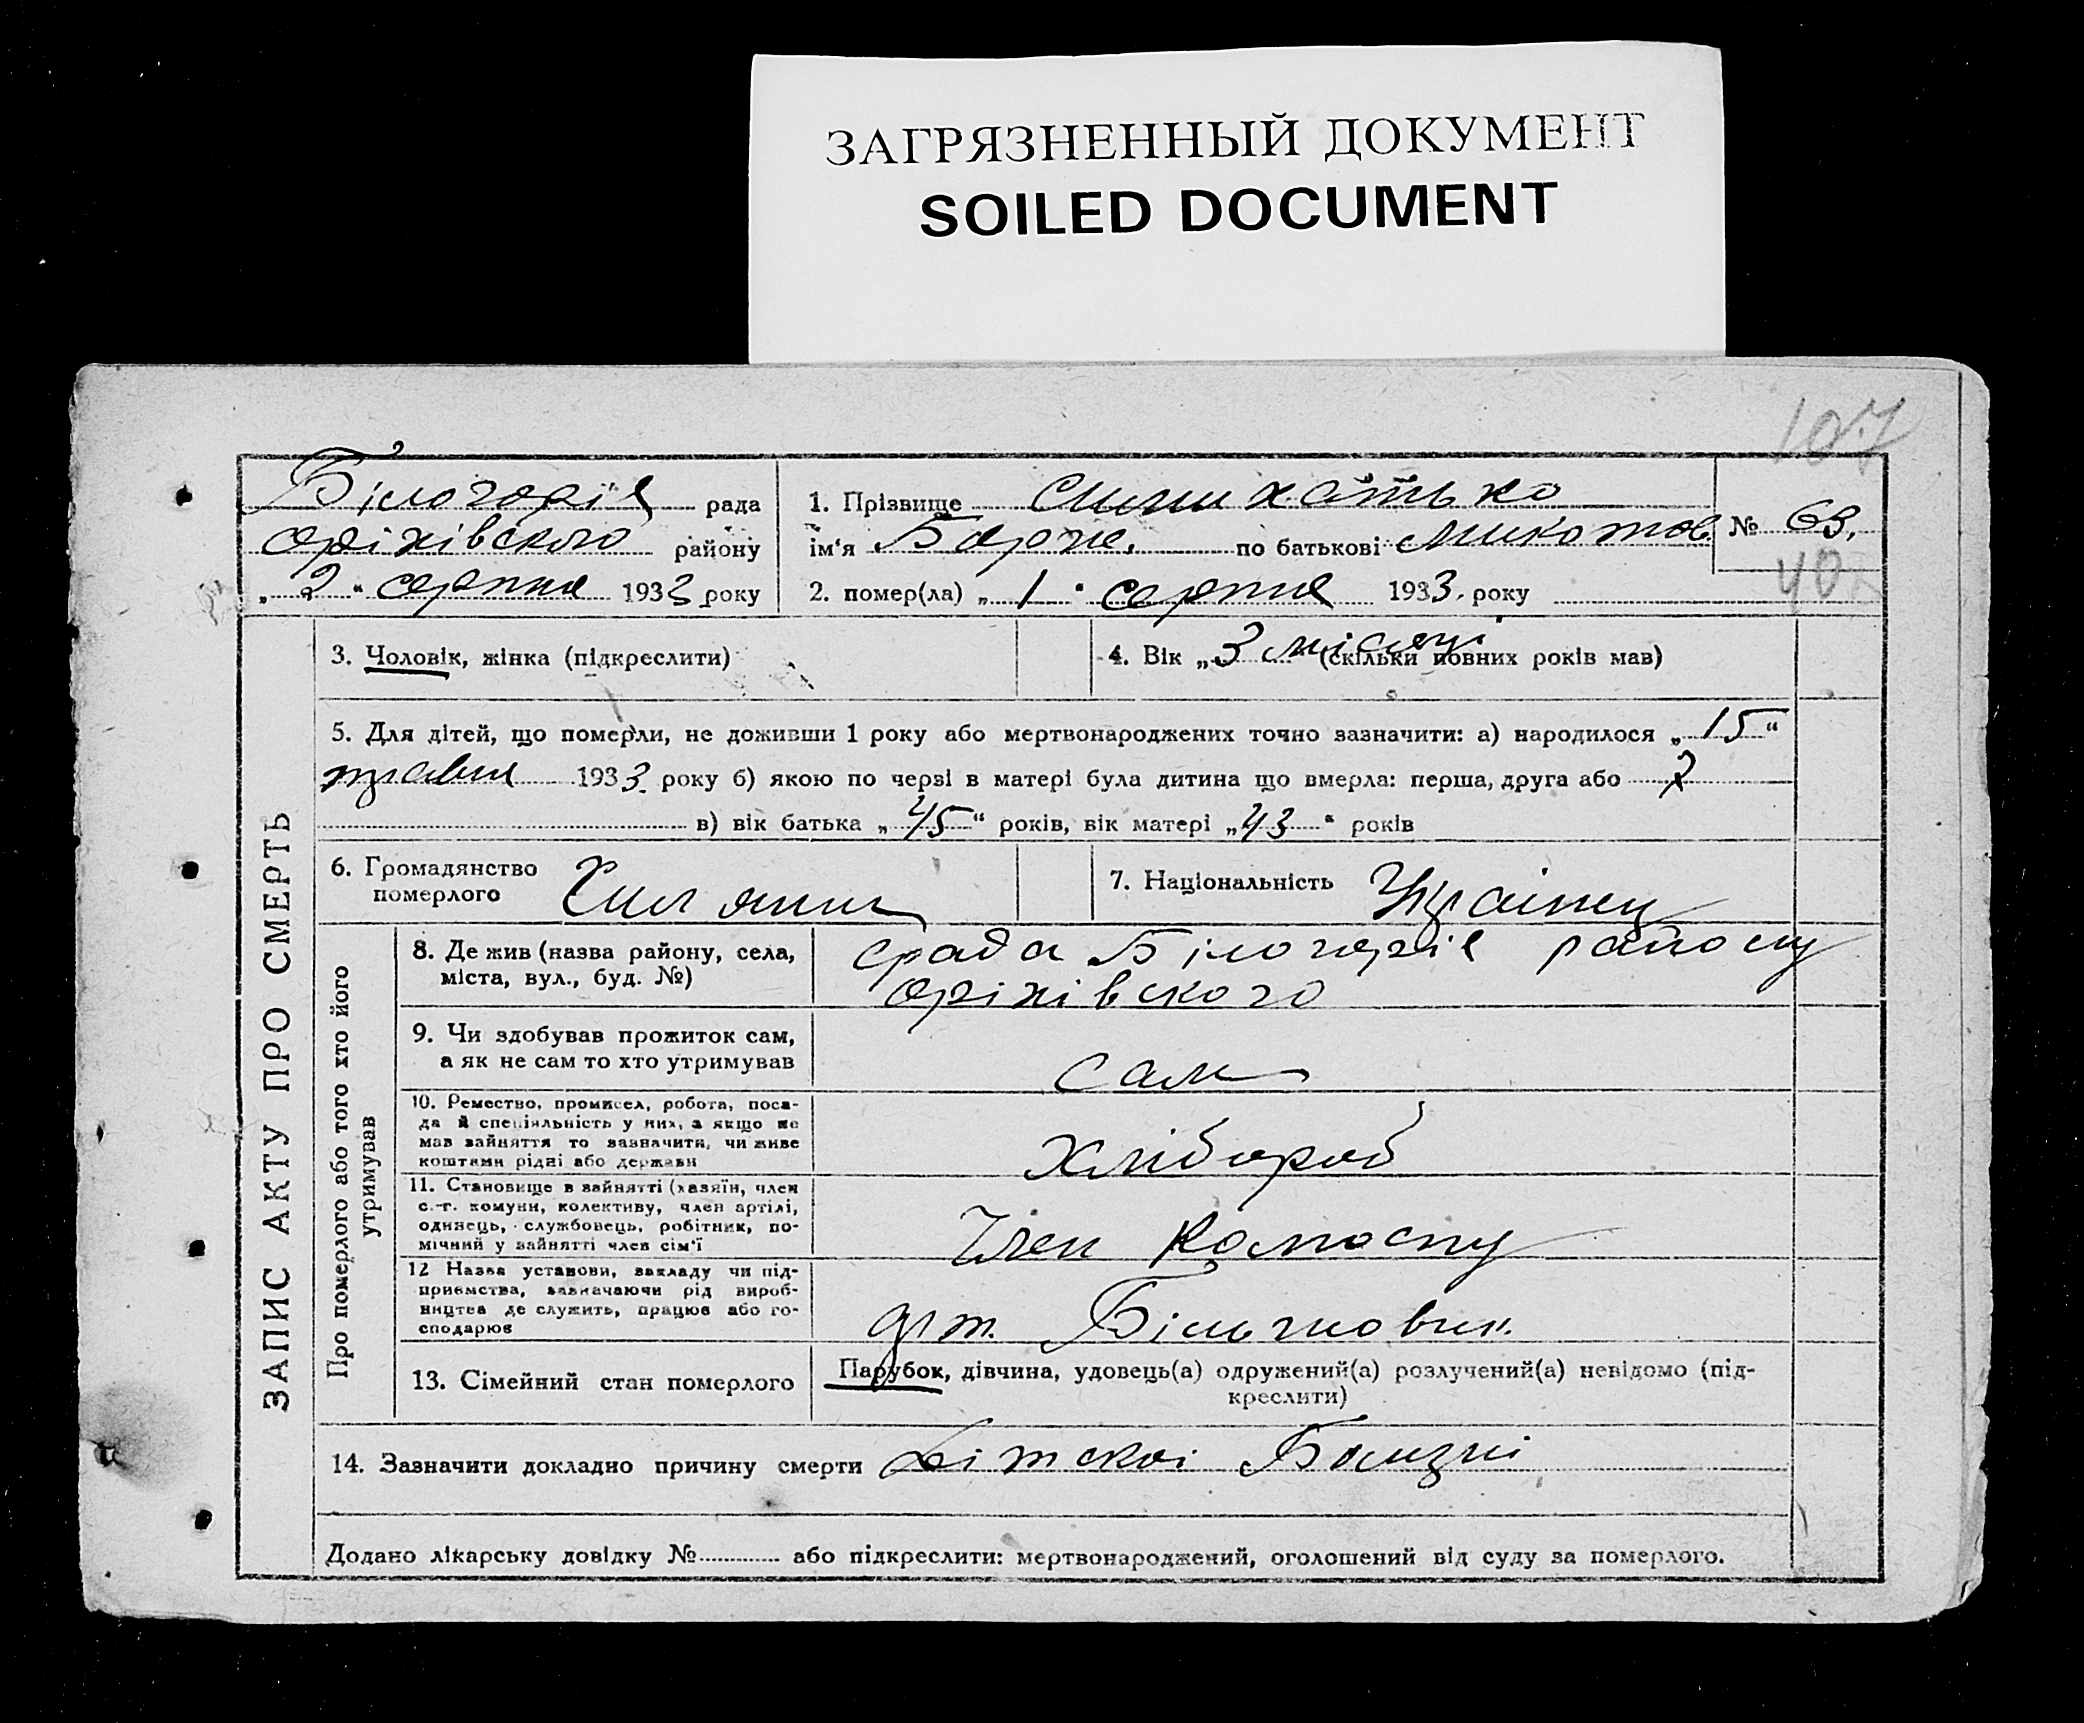 ЗАГРЯЗНЕННЫЙ ДОКУМЕНТ
SOILED DOCUMENT
107
Білогоріє рада
оріхівского району
„ 2 “ серпня 1933 року
1. Прізвище
ім‘я по батькові
2. помер(ла) „ 1 “ серпня 1933. року
№ 63.
40
ЗАПИС АКТУ ПРО СМЕРТЬ
3. Чоловік, жінка (підкреслити)
4. Вік „ 3 місяці “ (скільки повних років мав)
5. Для дітей, що померли, не доживши 1 року або мертвонароджених точно зазначити: а) народилося „ 15 “
травня 1933 року б) якою по черзі в матері була дитина що вмерла: перша, друга або 7
в) вік батька „ 45 “ років, вік матері „ 43 “ років
6. Громадянство
померлого
7. Національність Українец
Про померлого або того хто його
утримував
8. Де жив (назва району, села,
міста, вул., буд. №)
срада Білогоріє району
оріхівского
9. Чи здобував прожиток сам,
а як не сам то хто утримував
сам
10. Ремество, промисел, робота, поса-
да й спеціяльність у них, а якщо не
мав зайняття то зазначити, чи живе
коштами рідні або держави
хлібороб
11. Становище в зайнятті (хазяїн, член
с.-г. комуни, колективу, член артілі,
одинець, службовець, робітник, по-
мічний у зайнятті член сім‘ї
Член Колгоспу
12 Назва установи, закладу чи під-
приємства, зазначаючи рід вироб-
ництва де служить, працює або го-
сподарює
Більшовик.
13. Сімейний стан померлого
Парубок, дівчина, удовець(а) одружений(а) розлучений(а) невідомо (під-
креслити)
14. Зазначити докладно причину смерти Дітскоі Болізні
Додано лікарську довідку № або підкреслити: мертвонароджений, оголошений від суду за померлого.